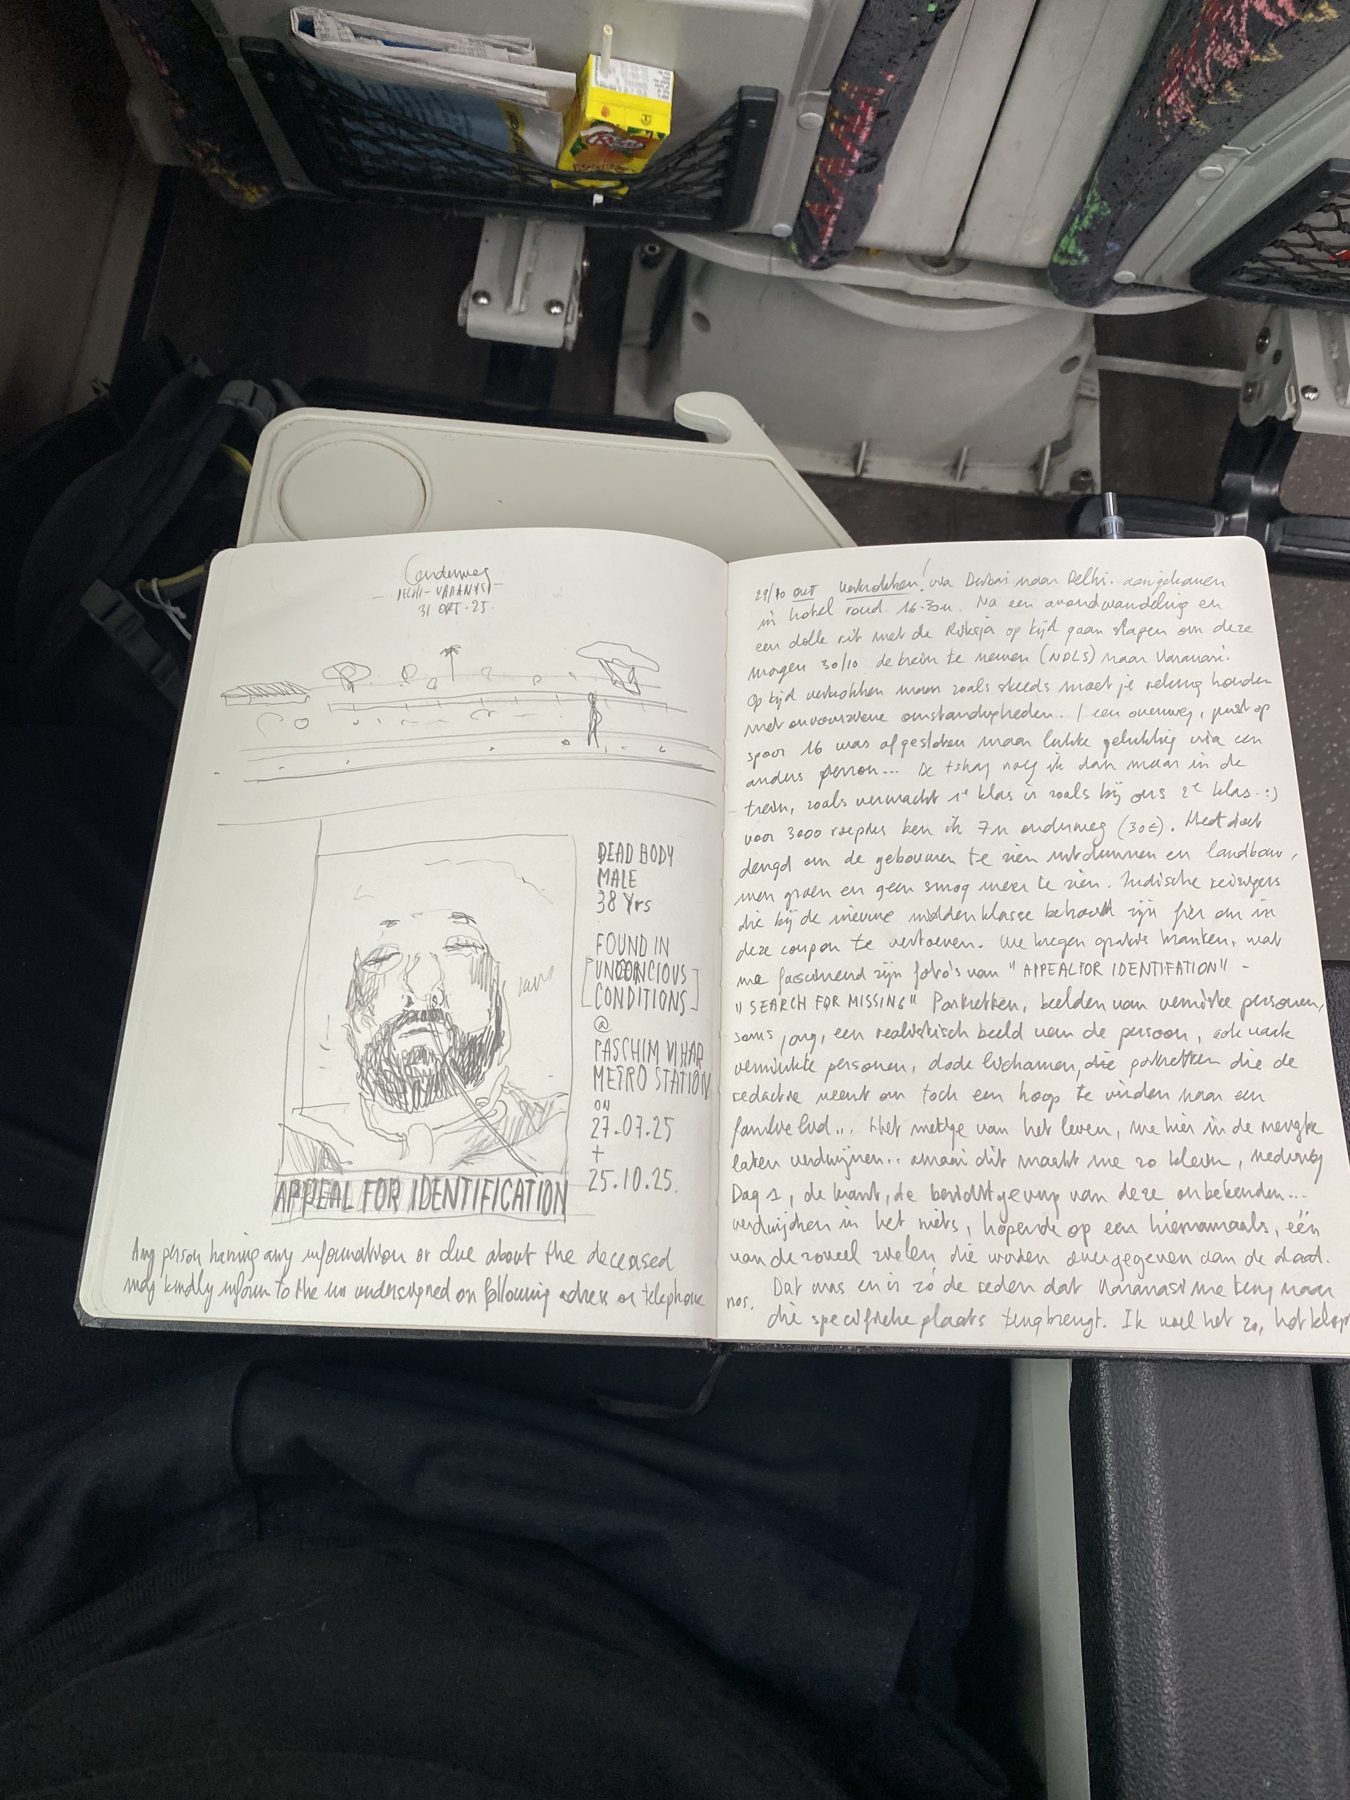 Onderweg
- DELHI - VARANASI -
31 OKT. 25.
DEAD BODY
MALE
38 Yrs
FOUND IN
[UNCONCIOUS]
[CONDITIONS]
@
PASCHIM VIHAR
METRO STATION
ON
27.07.25
+
25.10.25.
APPEAL FOR IDENTIFICATION
Any person having any information or clue about the deceased
may kindly inform to the un undersigned on following adress or telephone
nos.
29/10 OKT Vertrokken! via Dubai naar Delhi. aangekomen
in hotel rond 16.30u. Na een avondwandeling en
een dolle rit met de Riksja op tijd gaan slapen om deze
morgen 30/10 de trein te nemen (NDLS) naar Varanasi.
Op tijd vertrokken maar zoals steeds moet je rekening houden
met onvoorziene omstandigheden. 1 een overweg, juist op
spoor 16 was afgesloten maar lukte gelukkig via een
anders perron... De + shag nog ik dan maar in de
trein, zoals verwacht 1e klas is zoals bij ons 2e klas. :)
voor 3000 roepies ben ik 7u onderweg (30€). Het doet
deugd om de gebouwen te zien uitdunnen en landbouw,
men groen en geen smog meer te zien. Indische reizigers
die bij de nieuwe middenklasse behoren zijn fier om in
deze coupon te vertoeven. We kregen gratis kranten, wat
me fascineend zijn foto's van "APPEAL FOR IDENTIFATION" -
"SEARCH FOR MISSING" Portretten, beelden van vermiste personen,
soms jong, een realistisch beeld van de persoon, ook vaak
verminkte personen, dode lichamen, die portretten die de
redactie neemt om toch een hoop te vinden naar een
familielid... Het metje van het leven, me hier in de menigte
laten verdwijnen.. amaai dit maakt me zo klein, nederig
Dag 1, de krant, de berichtgeving van deze onbekenden...
verdwijnen in het niets, hopende op een hiernamaals, één
van de zoveel zielen die worden overgegeven aan de dood.
Dat was en is zó de reden dat Varanasi me terug naar
die specifieke plaats terugbrengt. Ik voel het zo, het klopt